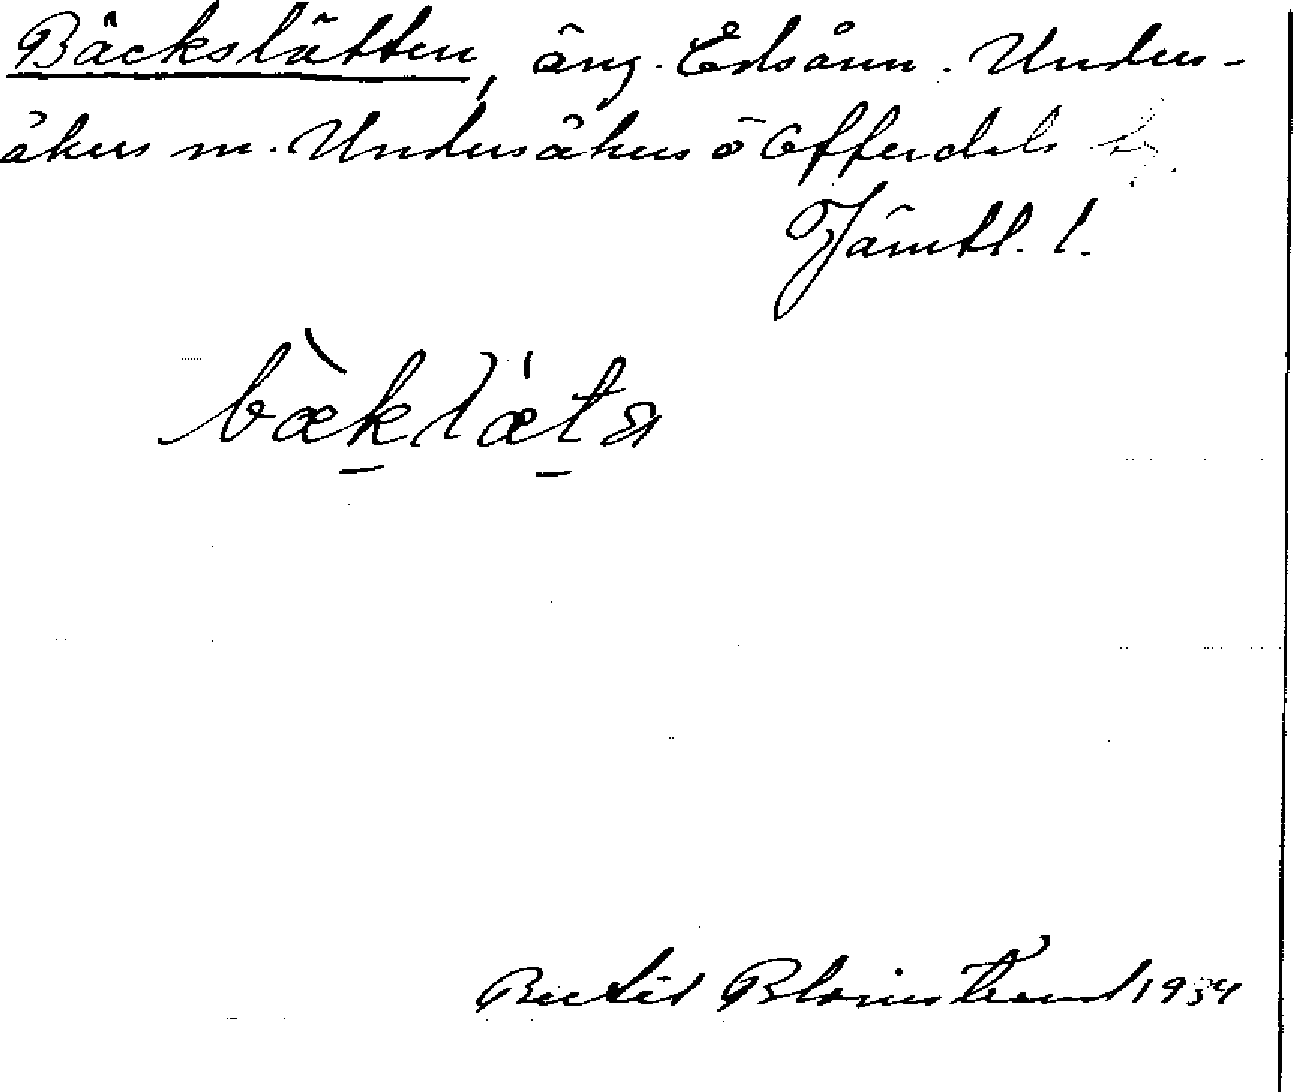 Bäckslätten, äng. Edsånn. Under-
åkers sn. Undersåkers o Offerdals
Jämtl. l.
bæklæt
Bertil Blomstrand 1934